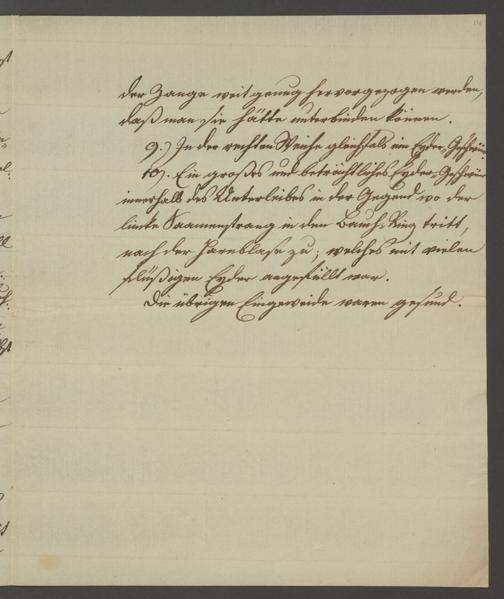 der Zange weit genug hervorgezogen werden,
daß man sie hätte unterbinden können.
9.) In der rechten Weihe gleichfals ein Eyder-Geschwür.
10. Ein großes und beträchtliches Eyder-Geschwür
innerhalb des Unterleibes in der Gegend wo der
linke Saamenstrang in den Bauch-Ring tritt,
nach der Harnblase zu; welches mit vielen
flüßigen Eyder angefüllt war.
Die übrigen Eingeweide waren gesund.